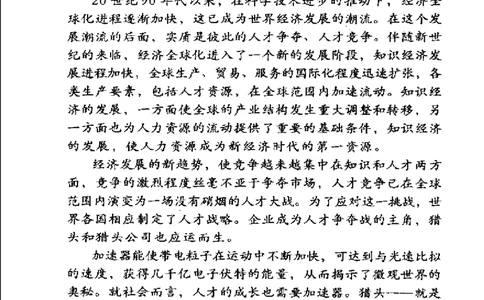 20世纪90年代以来，在科学技术进步的推动下，经济全
球化进程逐渐加快，这已成为世界经济发展的潮流。在这个发
展潮流的后面，实质是彼此的人才争夺、人才竞争。伴随新世
纪的来临，经济全球化进入了一个新的发展阶段，知识经济发
展进程加快，全球生产、贸易、服务的国际化程度迅速扩张，各
类生产要素，包括人才资源，在全球范围内加速流动。知识经
济的发展，一方面使全球的产业结构发生重大调整和转移，另
一方面也为人力资源的流动提供了重要的基础条件，知识经济
的发展，使人力资源成为新经济时代的第一资源。
经济发展的新趋势，使竞争越来越集中在知识和人才两方
面，竞争的激烈程度丝毫不亚于争夺市场，人才竞争已在全球
范围内演变为一场没有硝烟的人才大战。为了应对这一挑战，世
界各国相应制定了人才战略。企业成为人才争夺战的主角，猎
头和猎头公司也应运而生。
加速器能使带电粒子在运动中不断加快，可达到与光速比拟
的速度，获得几千亿电子伏特的能量，从而揭示了微观世界的
奥秘。就社会而言，人才的成长也需要加速器。猎头——就是